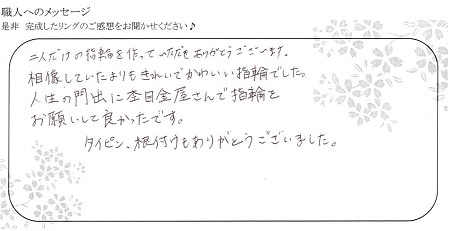 職人へのメッセージ
是非 完成したリングのご感想をお聞かせください♪
二人だけの指輪を作っていただきありがとうございます。
相像していたよりもきれいでかわいい指輪でした。
人生の門出に杢目金屋さんで指輪を
お願いして良かったです。
タイピン、根付けもありがとうございました。